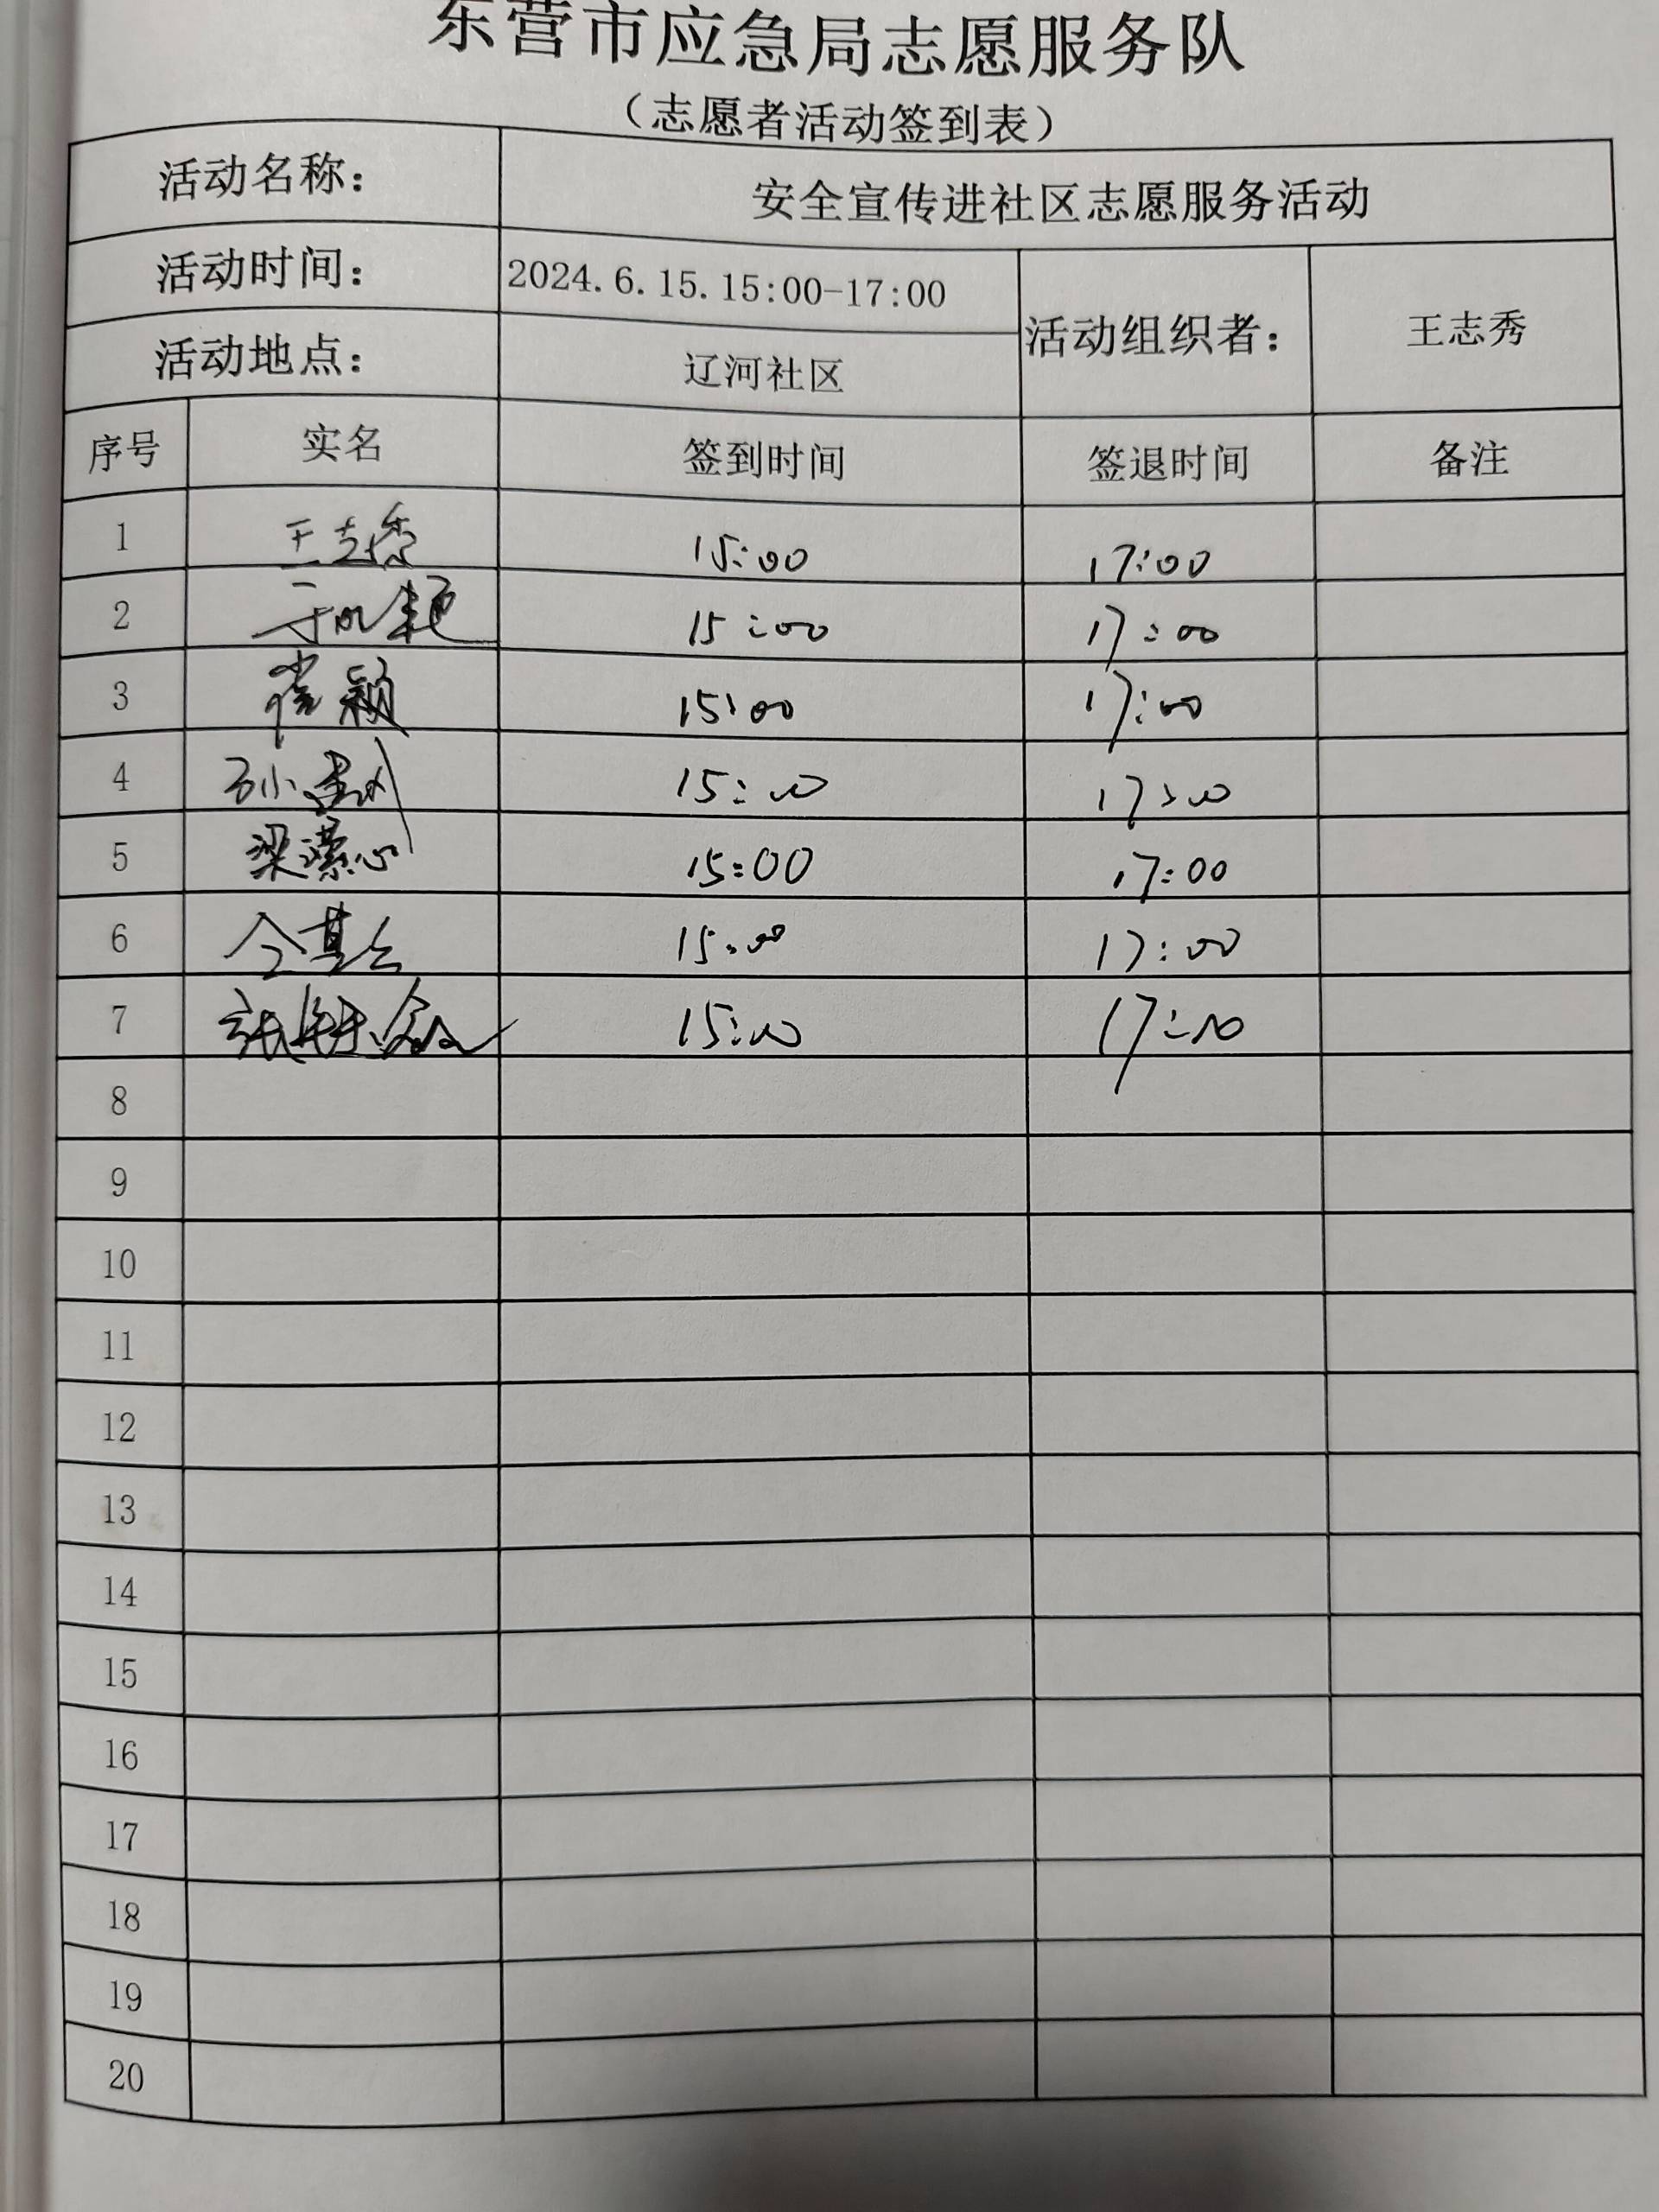 东营市应急局志愿服务队
（志愿者活动签到表）
活动名称： 安全宣传进社区志愿服务活动
活动时间： 2024.6.15.15:00-17:00 活动组织者： 王志秀
活动地点： 辽河社区
序号 实名 签到时间 签退时间 备注
1 王志秀 15:00 17:00
2 15:00 17:00
3 崔颖 15:00 17:00
4 15:00 17:00
5 梁潆心 15:00 17:00
6 15:00 17:00
7 15:00 17:00
8
9
10
11
12
13
14
15
16
17
18
19
20